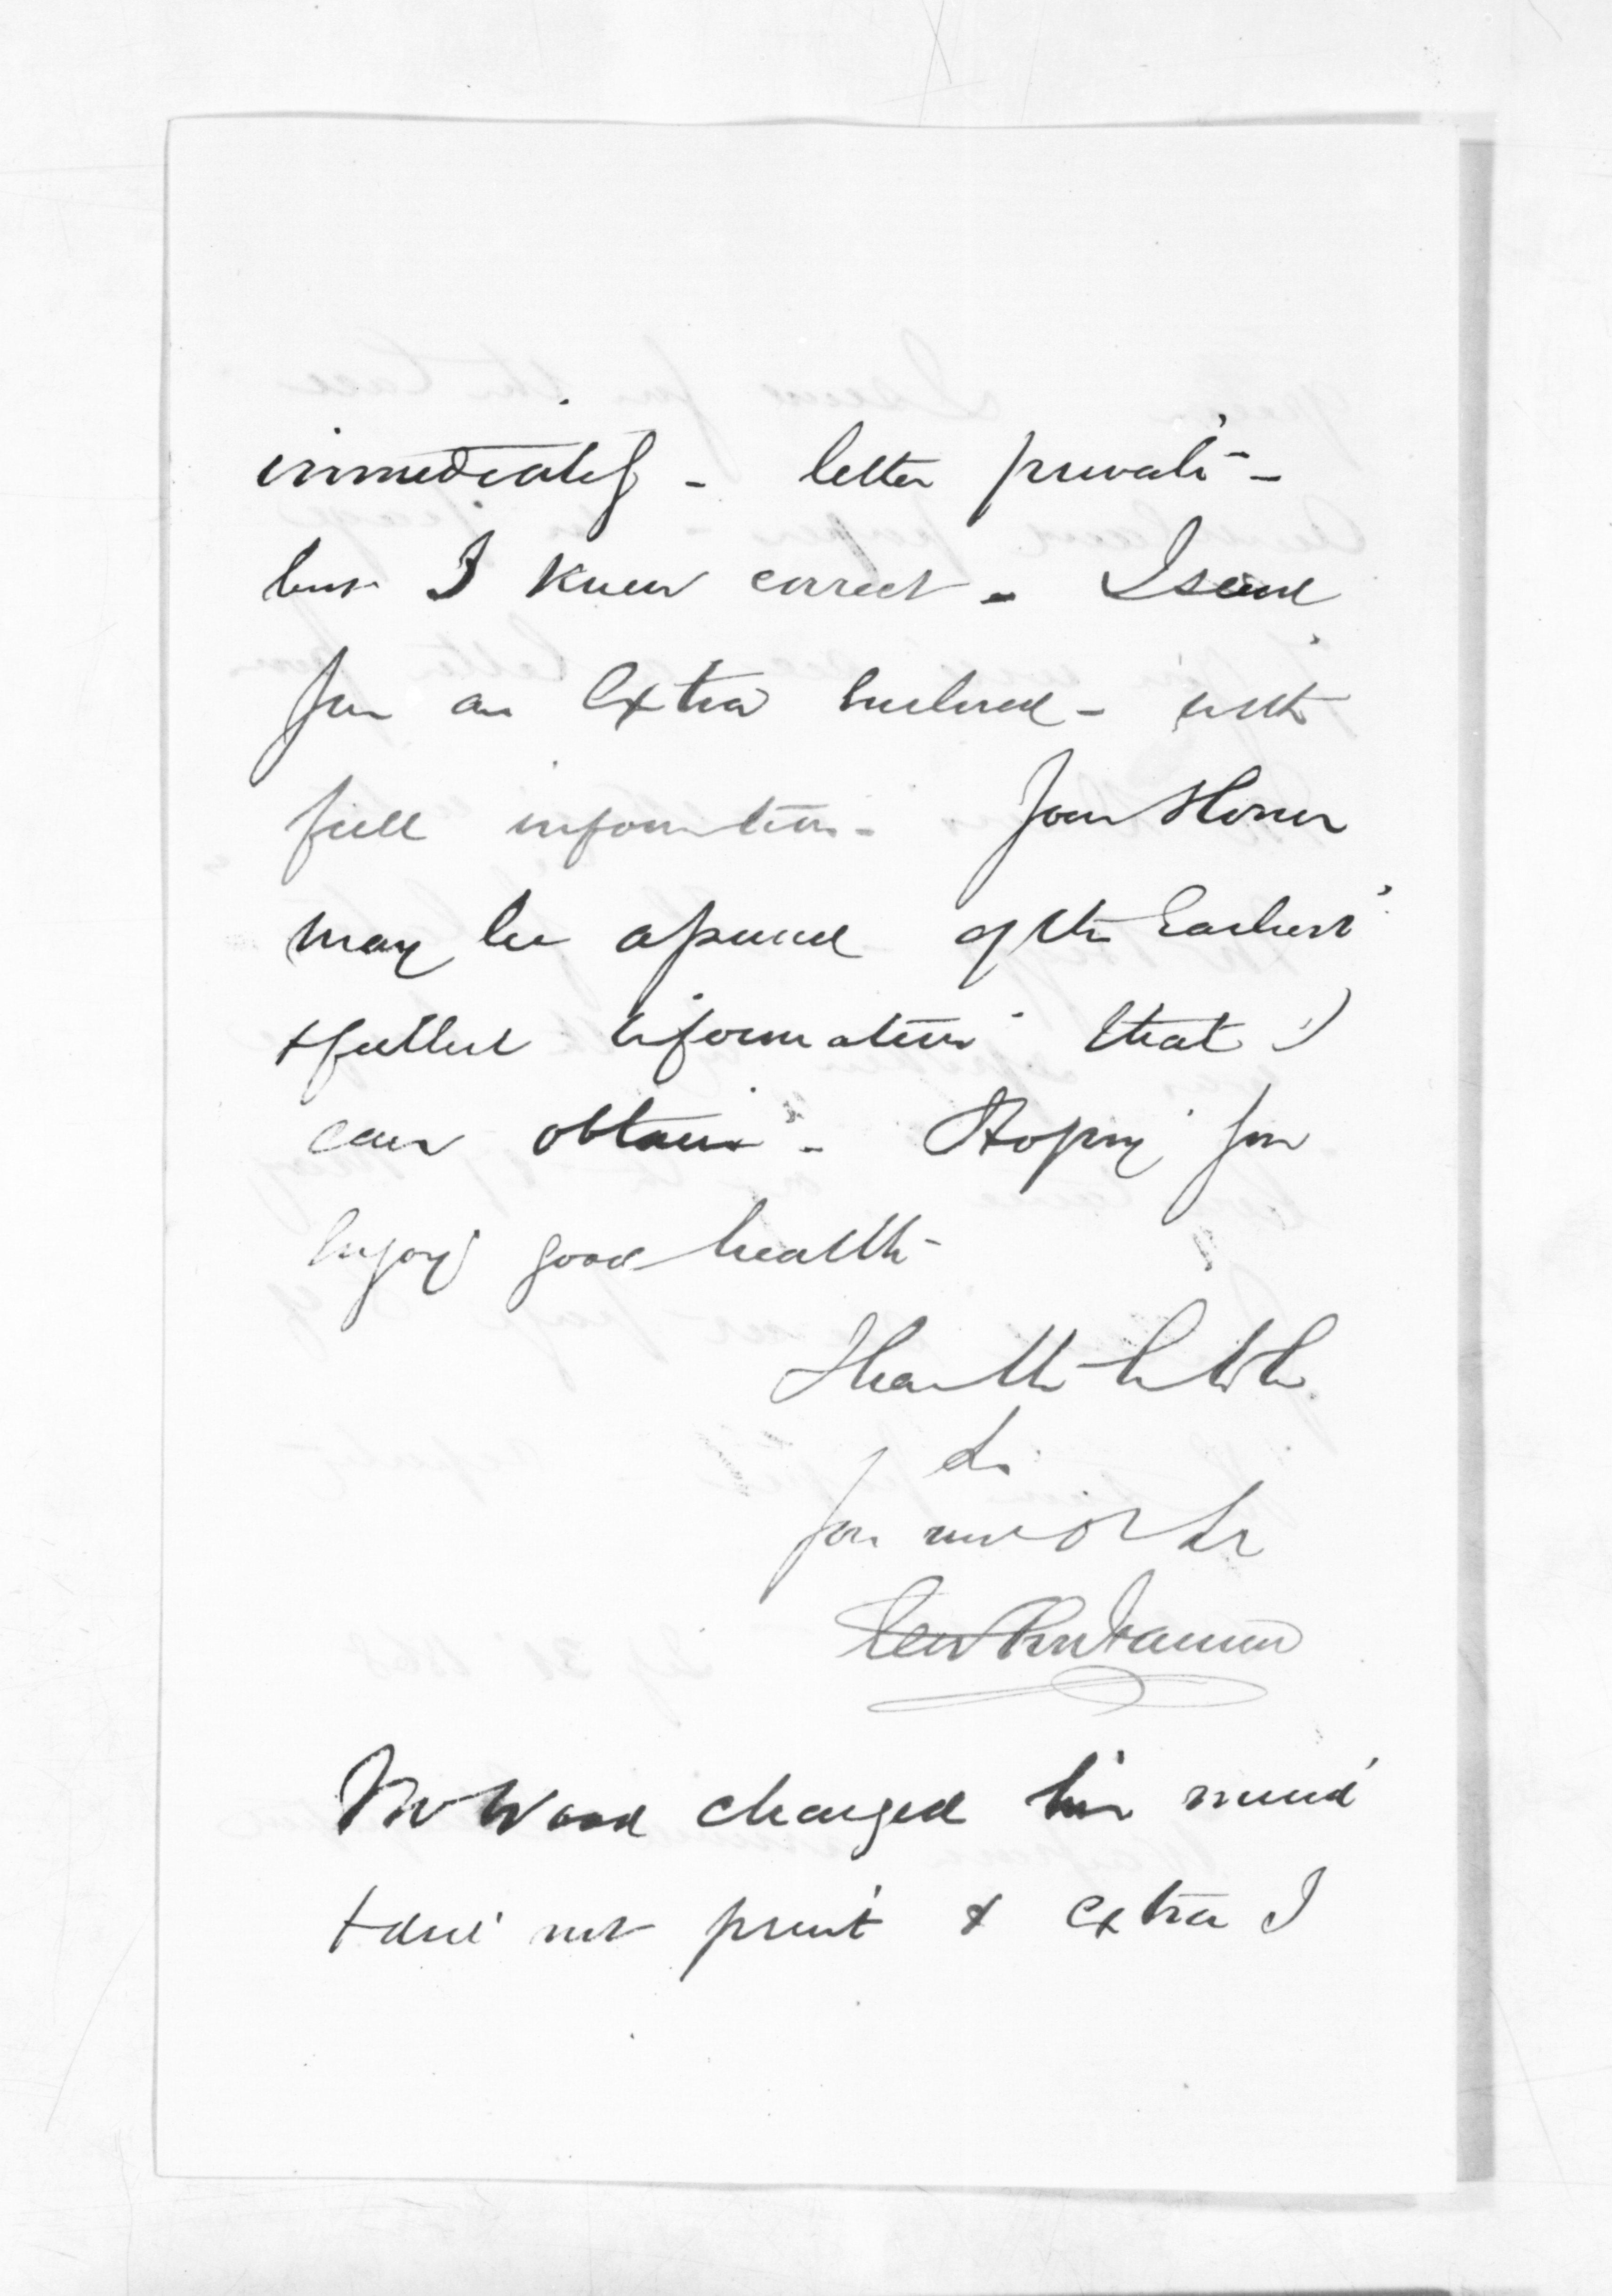 immediately - letter private -
but I know correct - I send
you an Extra enclosed - with
full information - Your Honor
may be assured of the Earliest
& fullest information that I
can obtain - Hoping you
enjoy good health -
I have the
Sir
your Sr
Mr Wood changed his mind
& did not print & extra I